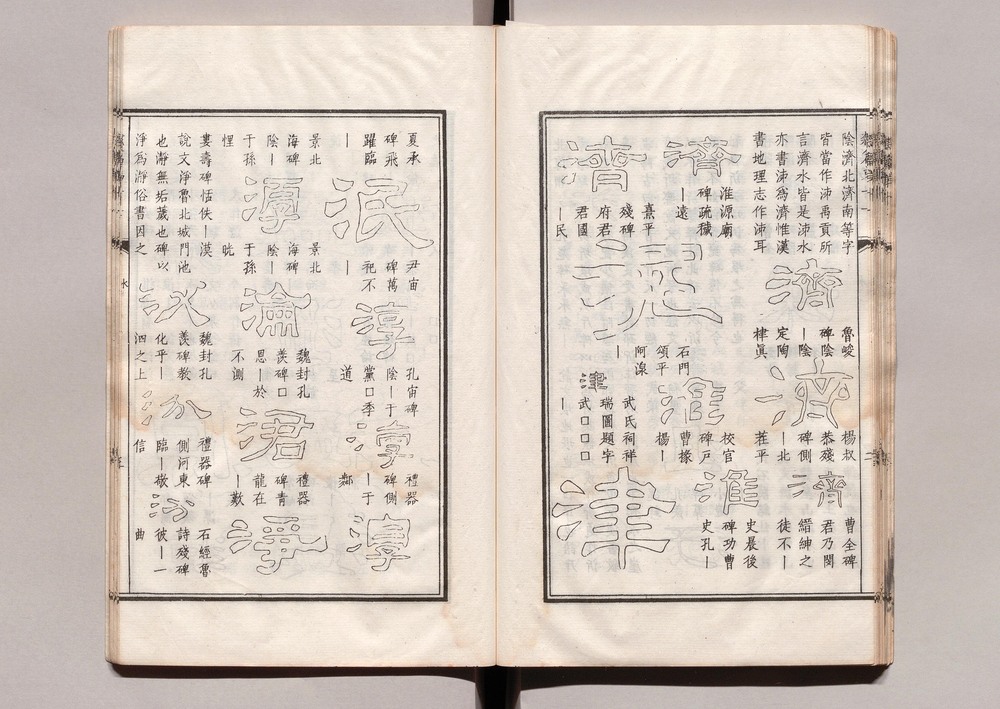 陰濟北濟南等字
皆當作沛禹貢所
言濟水皆是沛水
亦書沛爲濟惟漢
書地理志作沛耳
濟
魯峻
碑陰
｜陰
定陶
眞
濟
楊叔
恭殘
碑側
｜北
荏平
濟
曹全碑
君乃閔
縉紳之
徒不｜
濟
淮源廟
碑疏穢
｜遠
濟
熹平
殘碑
府君
君國
｜民
石門
頌平
阿湶
｜
淮
校官
碑戶
曹掾
楊｜
淮
史晨後
碑功曹
史孔｜
津
武氏祠祥
瑞圖題字
武口口口
｜
津
夏承
碑飛
躍臨
｜
泯
尹宙
碑萬
祀不
｜
淳
孔宙碑
陰｜于
黨口季
道
淳
禮器
碑側
｜于
鄰
淳
景北
海碑
陰｜
于孫
悝
淳
景北
海碑
陰｜
于孫
晄
淪
魏封孔
羨碑口
恩｜於
不測
涒
禮器
碑青
龍在
｜歎
淨
婁壽碑恬佚｜漠
說文淨魯北城門池
也瀞無垢薉也碑以
淨爲瀞俗書因之
水
洙
魏封孔
羨碑教
化乎｜
泗之上
汾
禮器碑
側河東
臨｜敬
信
汾
石經魯
詩殘碑
彼｜一
曲